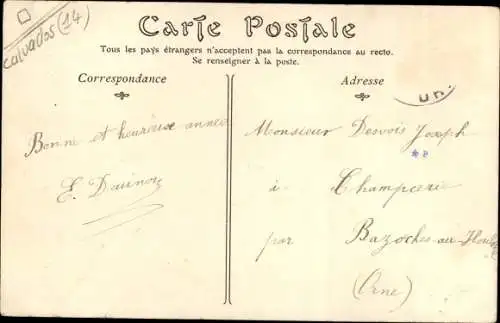 Calvados (14)
Carte Postale
Tous les pays étrangers n'acceptent pas la correspondance au recto.
Se renseigner à la poste.
Correspondance
Adresse
Bonne et heureuse année
E.
Monsieur Desvois Joseph
à Champcerie
par Bazoches-au-Houlme
(Orne)